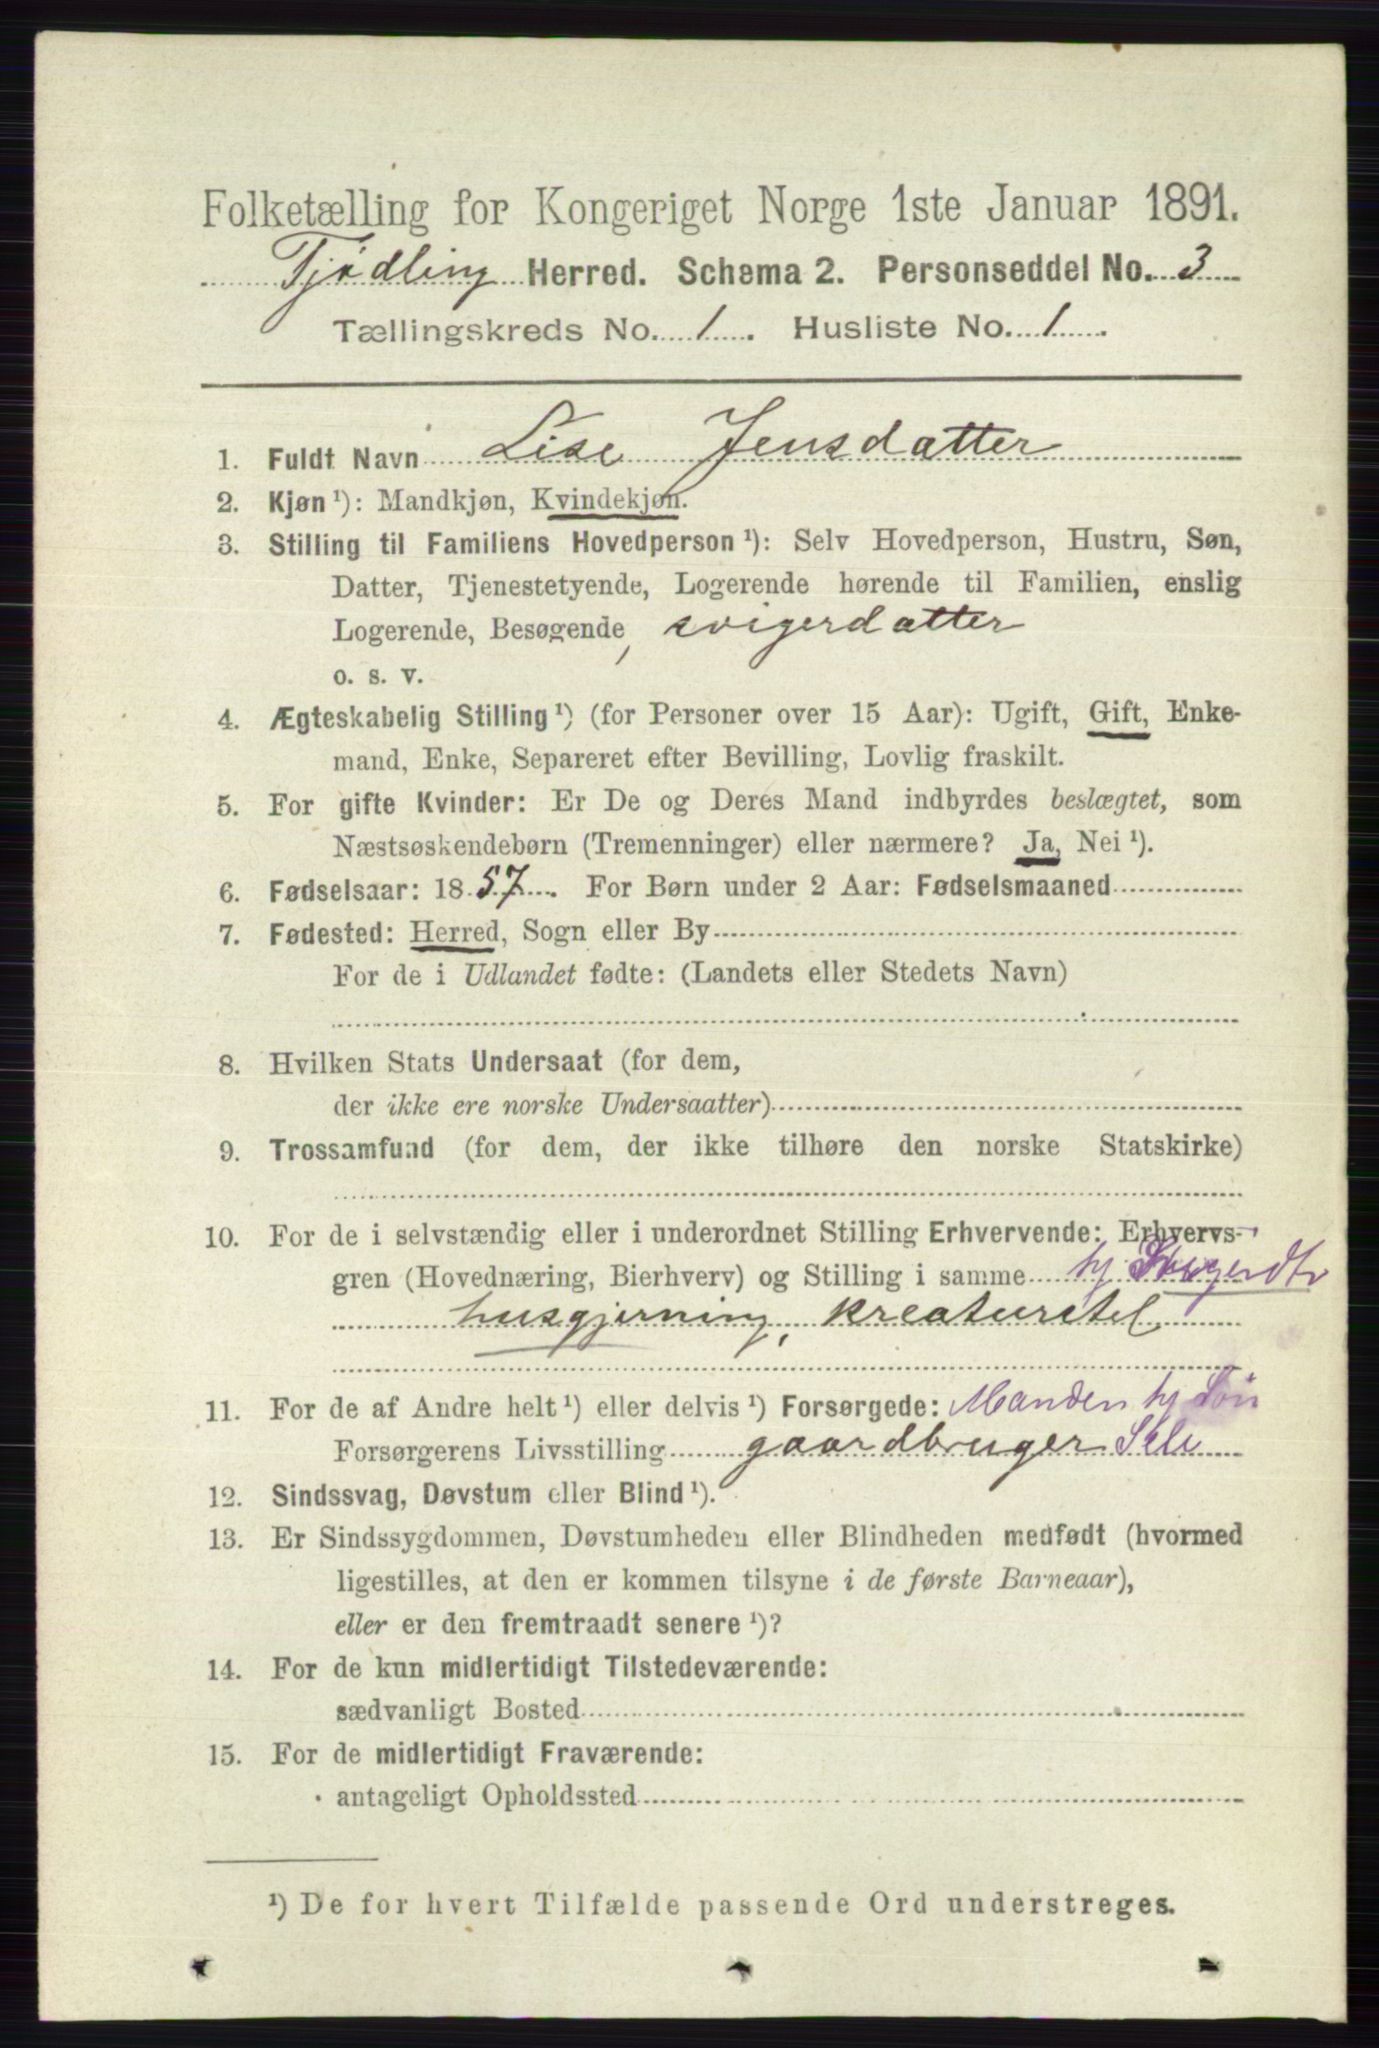 Folketælling for Kongeriget Norge 1ste Januar 1891.
Tjødling Herred. Schema 2. Personseddel No. 3
Tællingskreds No. 1. Husliste No. 1.
1. Fuldt Navn Lise Jensdatter
2. Kjøn ¹): Mandkjøn, Kvindekjøn.
3. Stilling til Familiens Hovedperson ¹): Selv Hovedperson, Hustru, Søn,
Datter, Tjenestetyende, Logerende hørende til Familien, enslig
Logerende, Besøgende, svigerdatter
o. s. v.
4. Ægteskabelig Stilling ¹) (for Personer over 15 Aar): Ugift, Gift, Enke-
mand, Enke, Separeret efter Bevilling, Lovlig fraskilt.
5. For gifte Kvinder: Er De og Deres Mand indbyrdes beslægtet, som
Næstsøskendebørn (Tremenninger) eller nærmere? Ja, Nei ¹).
6. Fødselsaar: 1857. For Børn under 2 Aar: Fødselsmaaned
7. Fødested: Herred, Sogn eller By
For de i Udlandet fødte: (Landets eller Stedets Navn)
8. Hvilken Stats Undersaat (for dem,
der ikke ere norske Undersaatter)
9. Trossamfund (for dem, der ikke tilhøre den norske Statskirke)
10. For de i selvstændig eller i underordnet Stilling Erhvervende: Erhvervs-
gren (Hovednæring, Bierhverv) og Stilling i samme hj
husgjerning, kreaturstel
11. For de af Andre helt ¹) eller delvis ¹) Forsørgede: Manden hj Søn
Forsørgerens Livsstilling gaardbruger
12. Sindssvag, Døvstum eller Blind ¹).
13. Er Sindssygdommen, Døvstumheden eller Blindheden medfødt (hvormed
ligestilles, at den er kommen tilsyne i de første Barneaar),
eller er den fremtraadt senere ¹)?
14. For de kun midlertidigt Tilstedeværende:
sædvanligt Bosted
15. For de midlertidigt Fraværende:
antageligt Opholdssted
¹) De for hvert Tilfælde passende Ord understreges.